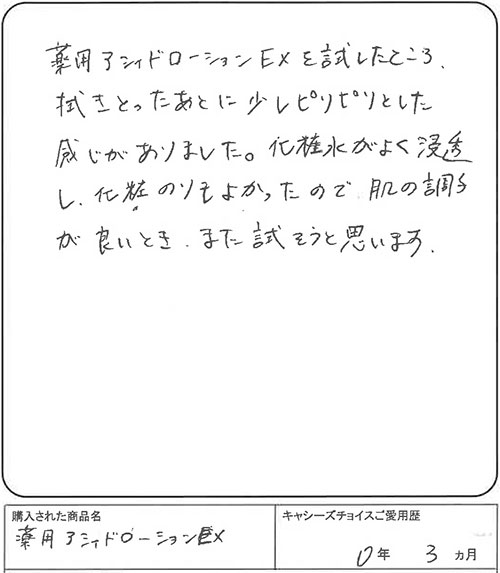 薬用アシィドローションEXを試したところ、
拭きとったあとに少しピリピリとした
感じがありました。化粧水がよく浸透
し、化粧のりもよかったので肌の調子
が良いとき、また試そうと思います。
購入された商品名
薬用アシィドローションEX
キャシーズチョイスご愛用歴
0年 3ヵ月